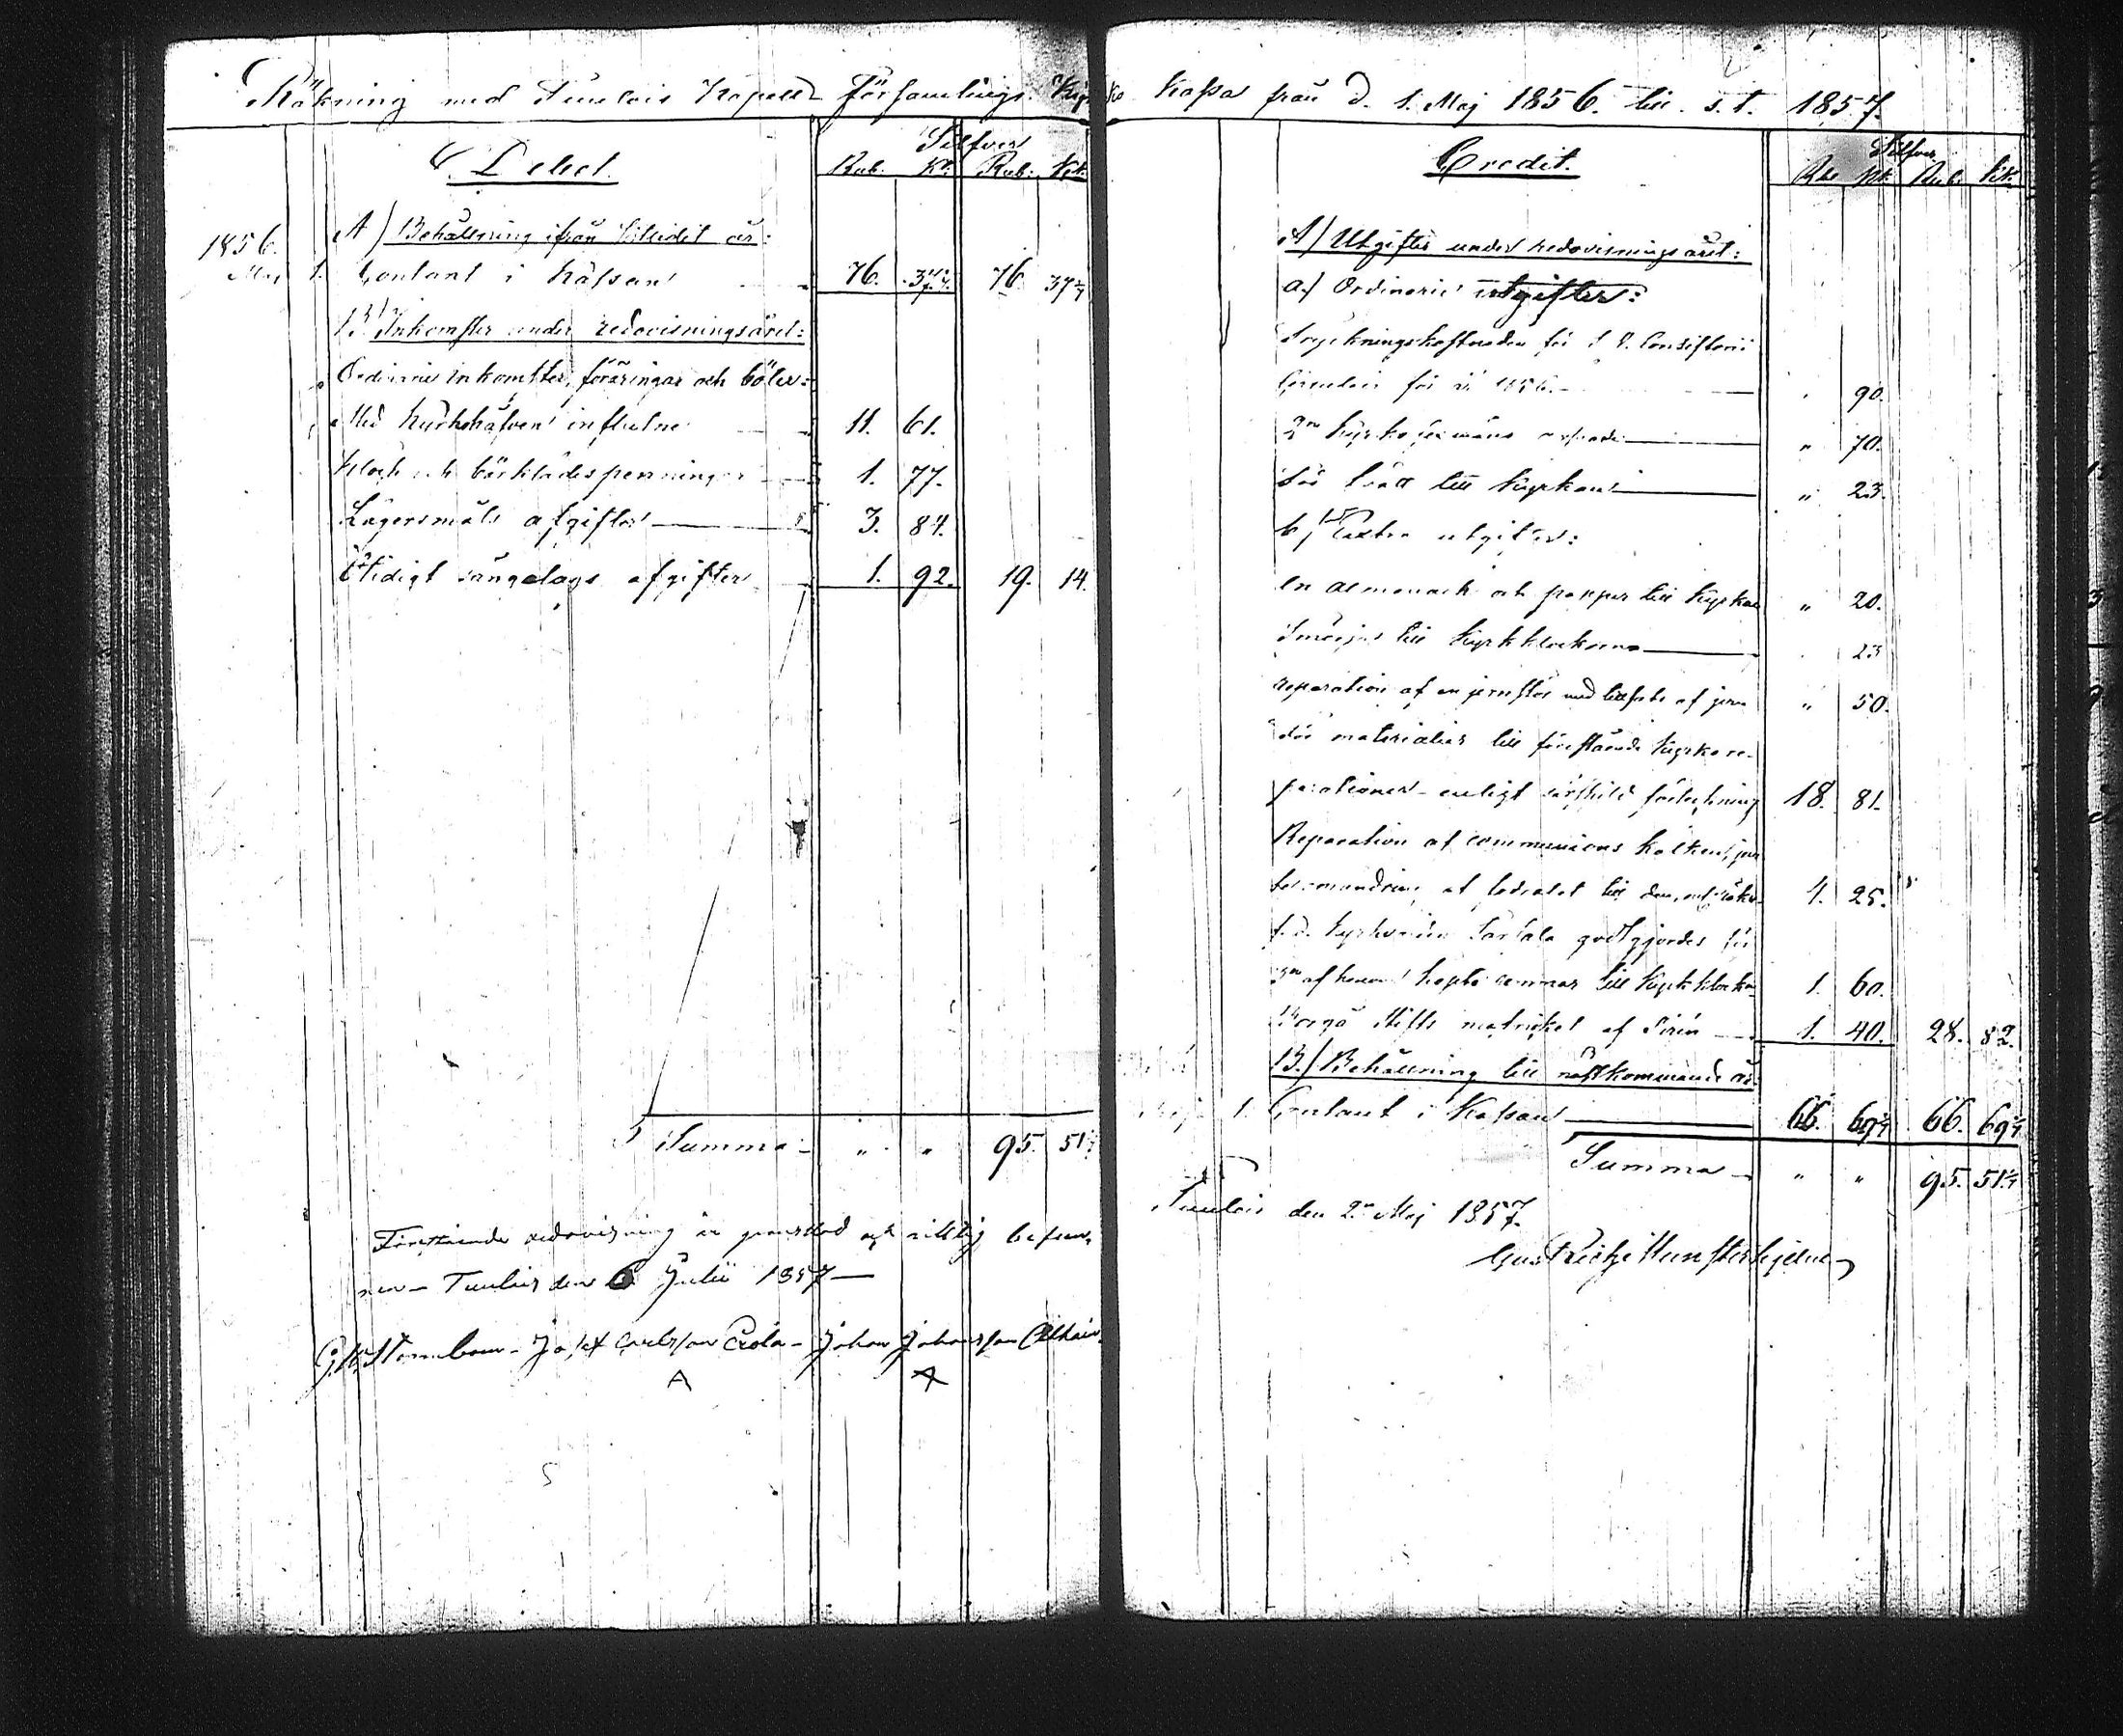 Räkning med Tuulois Kapells Församlings Kyrko Kassa från d. 1. Maj 1856. till s. t. 1857.
Debet.
Silfver
Rub. Kk. Rub. Kk.
1856. A/ Behållning ifrån tillidit år:
Maj 1. Contant i Kassan 76. 37 4/7. 76. 37 4/7
B/ Inkomster under redovisningsåret:
Ordinarie inkomster, föräringar och böter:
Med kyrkohåfven influtne 11. 61.
Klock och bårklädespenningar 1. 77.
Lägersmåls afgifter 3. 84.
Otidigt sängelags afgifter 1. 92. 19. 14.
Summa " " 95. 51
Förestående redovisning är granskad och riktig befun-
nen - Tulois den 6 Julii 1857
Josef Carlsson Johan Johansson
A
Credit.
Silfver
Rub. Kk. Rub. Kk.
A/ Utgifter under redovisningsåret:
a/ Ordinarie utgifter:
Tryckningskostnaden för Consistorii
Circulair för år 1856. 90.
2ne Kyrko " 70.
till Kyrkan " 23.
b/ Extra utgifter:
en almanach och papper till Kyrkan " 20.
Smörja till Kyrkklockorna 23
reparation af en jern med af jern " 50.
för materialier till förestående Kyrkore-
parationer enligt särskild förteckning 18. 81.
Reparation af communions kalken,
af till den, 4. 25.
f. d. Kyrkovärden godtgjordes för
af honom köpte remmar till Kyrkklockor 1. 60.
Borgå Stifts matrikel af 1. 40. 28. 82.
B/ Behållning till nästkommande år
1. Contant i Kassan 66. 69 4/7 66. 69 4/7
Summa " " 95. 51 4/7
Tuulois den 2 Maj 1857.